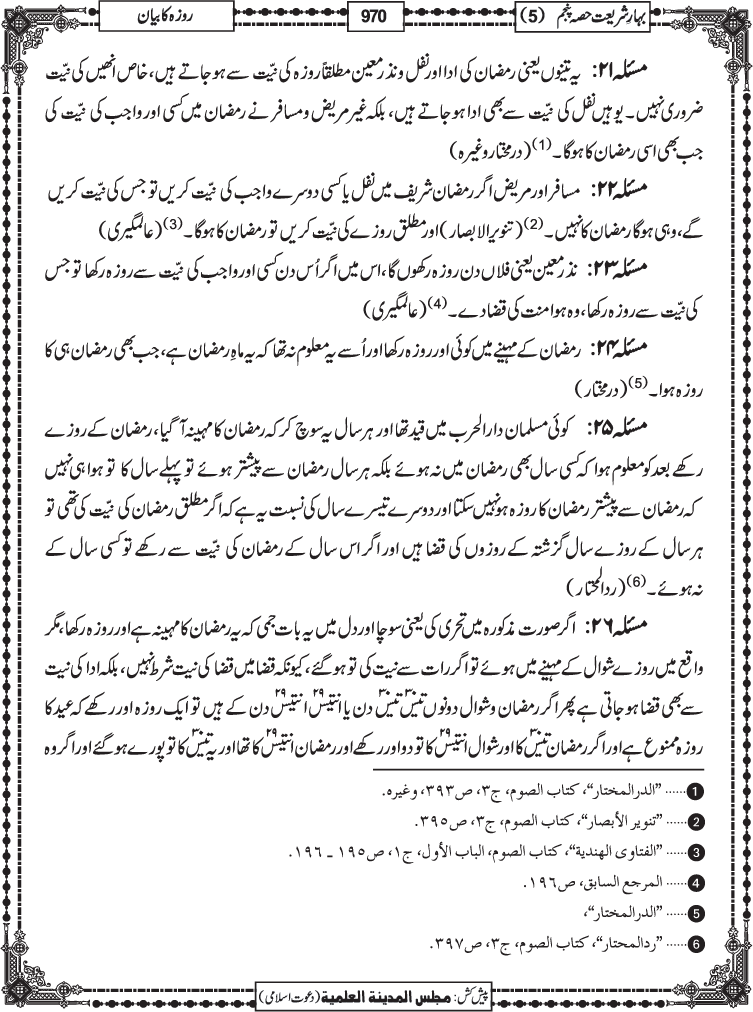 بہارِ شریعت حصہ پنجم (5)
970
روزہ کا بیان
مسئلہ ۲۱: یہ تینوں یعنی رمضان کی ادا اور نفل و نذر معین مطلقاً روزہ کی نیّت سے ہو جاتے ہیں، خاص انھیں کی نیّت
ضروری نہیں۔ یوہیں نفل کی نیّت سے بھی ادا ہو جاتے ہیں، بلکہ غیر مریض و مسافر نے رمضان میں کسی اور واجب کی نیّت کی
جب بھی اسی رمضان کا ہوگا۔ (1) (درمختار وغیرہ)
مسئلہ ۲۲: مسافر اور مریض اگر رمضان شریف میں نفل یا کسی دوسرے واجب کی نیّت کریں تو جس کی نیّت کریں
گے، وہی ہوگا رمضان کا نہیں۔ (2) (تنویر الابصار) اور مطلق روزے کی نیّت کریں تو رمضان کا ہوگا۔ (3) (عالمگیری)
مسئلہ ۲۳: نذر معین یعنی فلاں دن روزہ رکھوں گا، اس میں اگر اُس دن کسی اور واجب کی نیّت سے روزہ رکھا تو جس
کی نیّت سے روزہ رکھا، وہ ہوا منت کی قضا دے۔ (4) (عالمگیری)
مسئلہ ۲۴: رمضان کے مہینے میں کوئی اور روزہ رکھا اور اُسے یہ معلوم نہ تھا کہ یہ ماہِ رمضان ہے، جب بھی رمضان ہی کا
روزہ ہوا۔ (5) (درمختار)
مسئلہ ۲۵: کوئی مسلمان دارالحرب میں قید تھا اور ہر سال یہ سوچ کر کہ رمضان کا مہینہ آ گیا، رمضان کے روزے
رکھے بعد کو معلوم ہوا کہ کسی سال بھی رمضان میں نہ ہوئے بلکہ ہر سال رمضان سے پیشتر ہوئے تو پہلے سال کا تو ہوا ہی نہیں
کہ رمضان سے پیشتر رمضان کا روزہ ہو نہیں سکتا اور دوسرے تیسرے سال کی نسبت یہ ہے کہ اگر مطلق رمضان کی نیّت کی تھی تو
ہر سال کے روزے سال گزشتہ کے روزوں کی قضا ہیں اور اگر اس سال کے رمضان کی نیّت سے رکھے تو کسی سال کے
نہ ہوئے۔ (6) (ردالمحتار)
مسئلہ ۲۶: اگر صورت مذکورہ میں تحری کی یعنی سوچا اور دل میں یہ بات جمی کہ یہ رمضان کا مہینہ ہے اور روزہ رکھا، مگر
واقع میں روزے شوال کے مہینے میں ہوئے تو اگر رات سے نیت کی تو ہو گئے، کیونکہ قضا میں قضا کی نیت شرط نہیں، بلکہ ادا کی نیت
سے بھی قضا ہو جاتی ہے پھر اگر رمضان و شوال دونوں تیس۳۰ تیس۳۰ دن یا انتیس۲۹ انتیس۲۹ دن کے ہیں تو ایک روزہ اور رکھے کہ عید کا
روزہ ممنوع ہے اور اگر رمضان تیس۳۰ کا اور شوال انتیس۲۹ کا تو دو اور رکھے اور رمضان انتیس۲۹ کا تھا اور یہ تیس۳۰ کا تو پورے ہو گئے اور اگر وہ
1 ...... ”الدرالمختار“، کتاب الصوم، ج۳، ص۳۹۳، وغیرہ.
2 ...... ”تنویر الأبصار“، کتاب الصوم، ج۳، ص۳۹۵.
3 ...... ”الفتاوی الهندية“، کتاب الصوم، الباب الأول، ج۱، ص۱۹۵ ـ ۱۹٦.
4 ...... المرجع السابق، ص۱۹٦.
5 ...... ”الدرالمختار“،
6 ...... ”ردالمحتار“، کتاب الصوم، ج۳، ص۳۹۷.
پیش کش: مجلس المدينة العلمية (دعوت اسلامی)